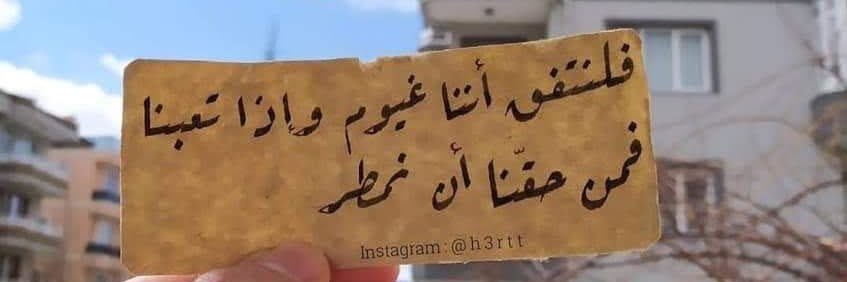 فلنتفق أننا غيوم وإذا تعبنا
فمن حقّنا أن نمطر
Instagram : @h3rtt